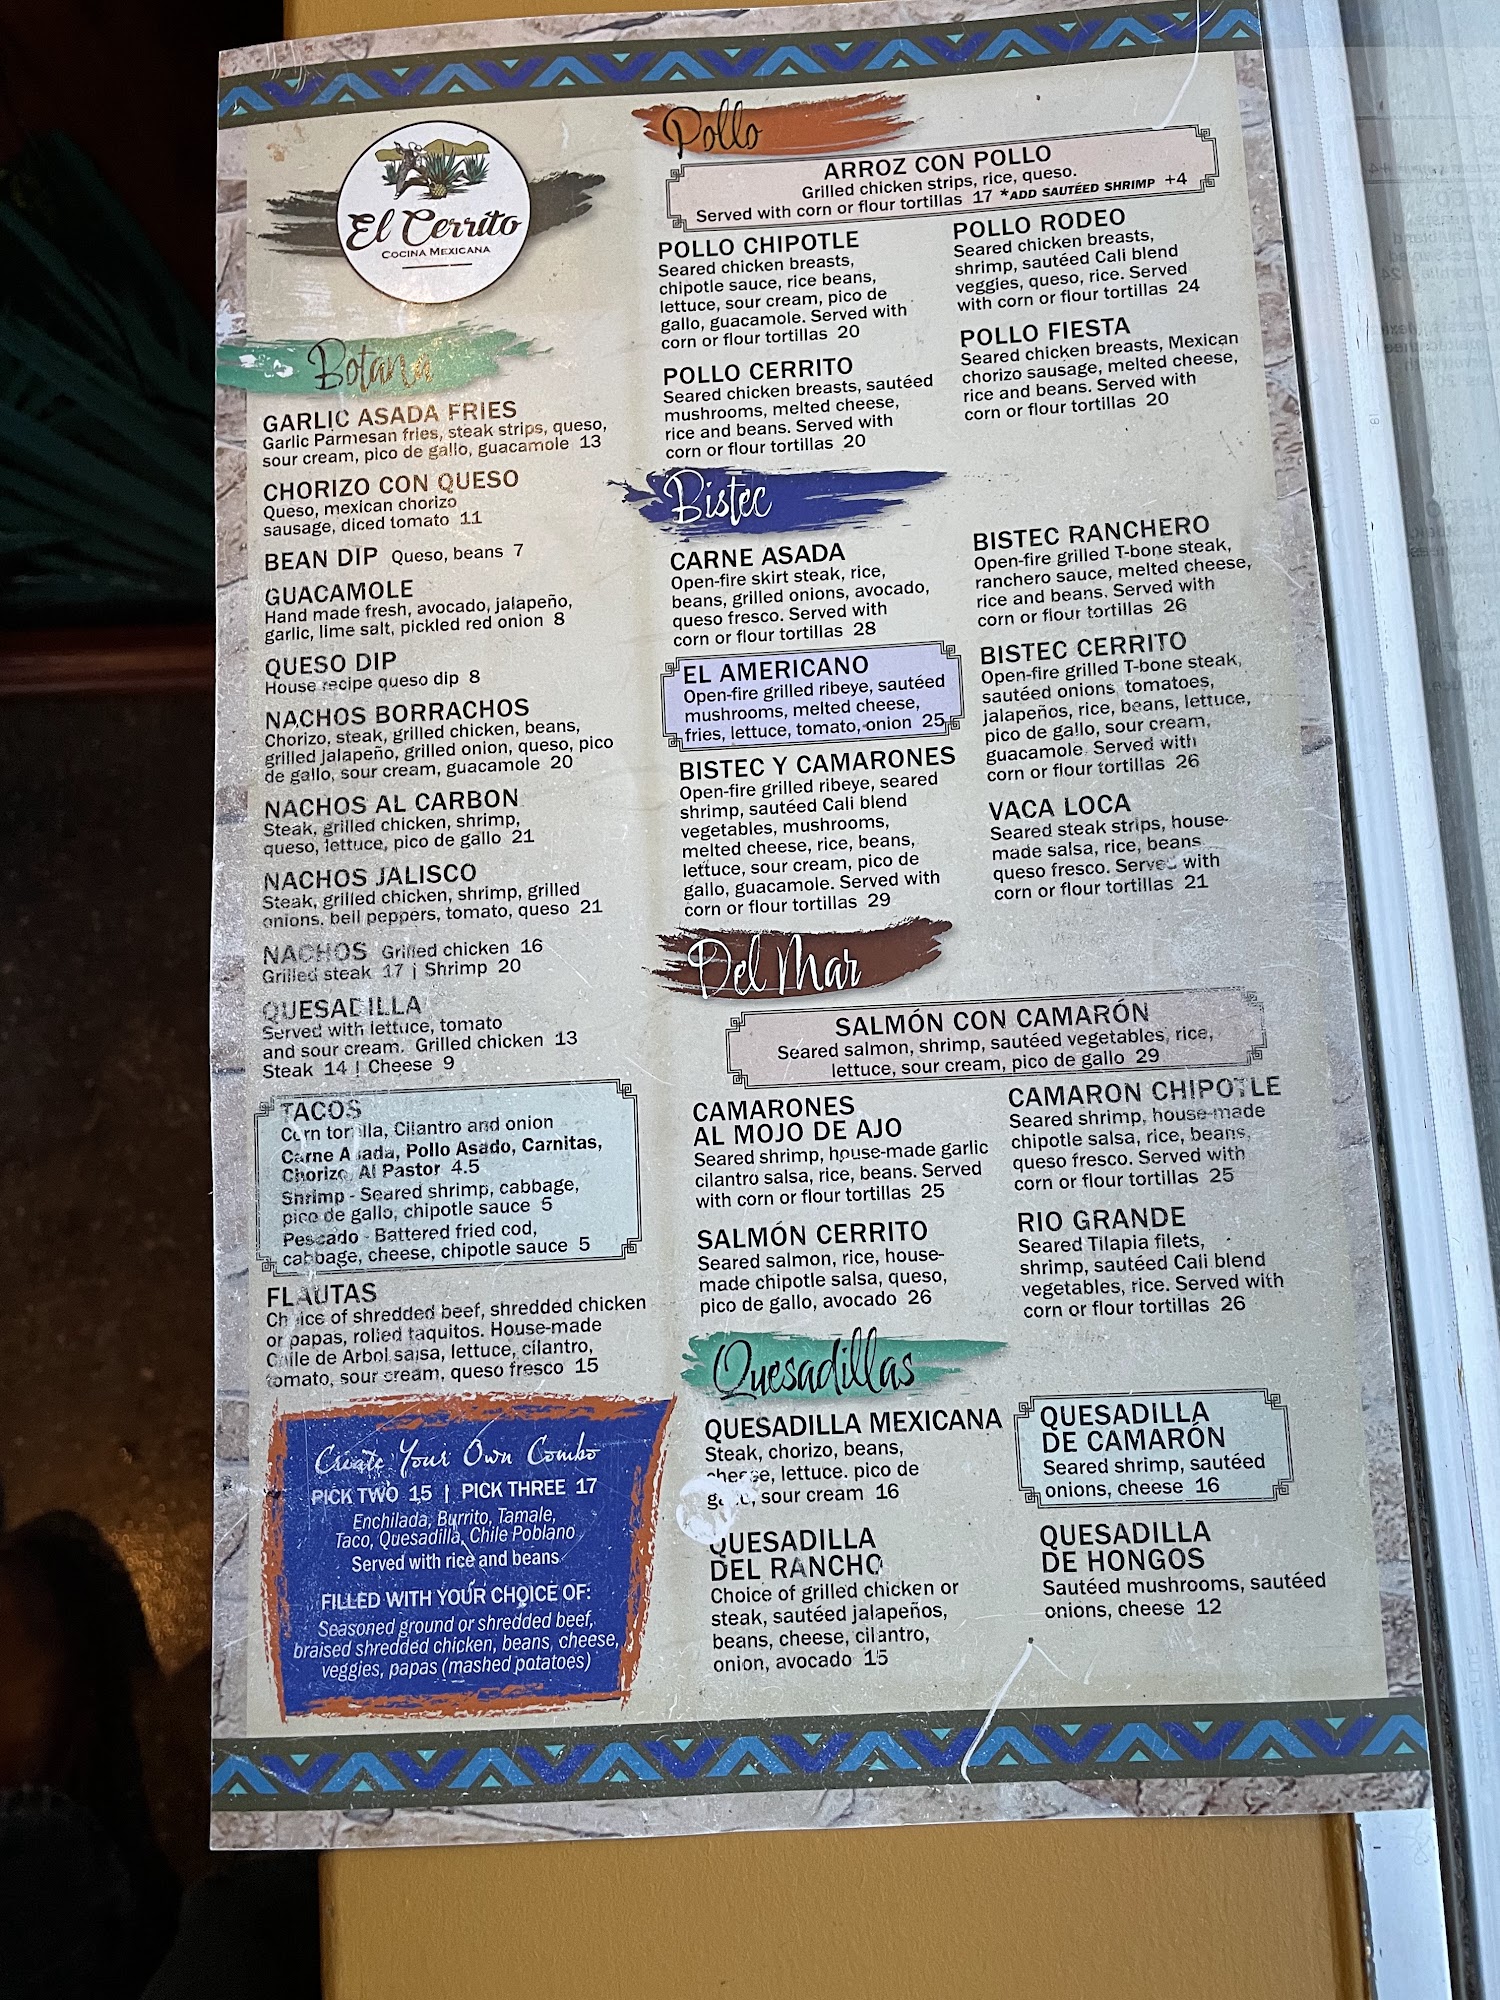 El Cerrito
COCINA MEXICANA
Botana
GARLIC ASADA FRIES
Garlic Parmesan fries, steak strips, queso,
sour cream, pico de gallo, guacamole 13
CHORIZO CON QUESO
Queso, mexican chorizo
sausage, diced tomato 11
BEAN DIP Queso, beans 7
GUACAMOLE
Hand made fresh, avocado, jalapeño,
garlic, lime salt, pickled red onion 8
QUESO DIP
House recipe queso dip 8
NACHOS BORRACHOS
Chorizo, steak, grilled chicken, beans,
grilled jalapeño, grilled onion, queso, pico
de gallo, sour cream, guacamole 20
NACHOS AL CARBON
Steak, grilled chicken, shrimp,
queso, lettuce, pico de gallo 21
NACHOS JALISCO
Steak, grilled chicken, shrimp, grilled
onions, bell peppers, tomato, queso 21
NACHOS Grilled chicken 16
Grilled steak 17 | Shrimp 20
QUESADILLA
Served with lettuce, tomato
and sour cream. Grilled chicken 13
Steak 14 | Cheese 9
TACOS
Corn tortilla, Cilantro and onion
Carne Asada, Pollo Asado, Carnitas,
Chorizo, Al Pastor 4.5
Shrimp - Seared shrimp, cabbage,
pico de gallo, chipotle sauce 5
Pescado - Battered fried cod,
cabbage, cheese, chipotle sauce 5
FLAUTAS
Choice of shredded beef, shredded chicken
or papas, rolled taquitos. House-made
Chile de Arbol salsa, lettuce, cilantro,
tomato, sour cream, queso fresco 15
Create Your Own Combo
PICK TWO 15 | PICK THREE 17
Enchilada, Burrito, Tamale,
Taco, Quesadilla, Chile Poblano
Served with rice and beans
FILLED WITH YOUR CHOICE OF:
Seasoned ground or shredded beef,
braised shredded chicken, beans, cheese,
veggies, papas (mashed potatoes)
Pollo
ARROZ CON POLLO
Grilled chicken strips, rice, queso.
Served with corn or flour tortillas 17 *ADD SAUTÉED SHRIMP +4
POLLO CHIPOTLE
Seared chicken breasts,
chipotle sauce, rice beans,
lettuce, sour cream, pico de
gallo, guacamole. Served with
corn or flour tortillas 20
POLLO CERRITO
Seared chicken breasts, sautéed
mushrooms, melted cheese,
rice and beans. Served with
corn or flour tortillas 20
POLLO RODEO
Seared chicken breasts,
shrimp, sautéed Cali blend
veggies, queso, rice. Served
with corn or flour tortillas 24
POLLO FIESTA
Seared chicken breasts, Mexican
chorizo sausage, melted cheese,
rice and beans. Served with
corn or flour tortillas 20
Bistec
CARNE ASADA
Open-fire skirt steak, rice,
beans, grilled onions, avocado,
queso fresco. Served with
corn or flour tortillas 28
EL AMERICANO
Open-fire grilled ribeye, sautéed
mushrooms, melted cheese,
fries, lettuce, tomato, onion 25
BISTEC Y CAMARONES
Open-fire grilled ribeye, seared
shrimp, sautéed Cali blend
vegetables, mushrooms,
melted cheese, rice, beans,
lettuce, sour cream, pico de
gallo, guacamole. Served with
corn or flour tortillas 29
BISTEC RANCHERO
Open-fire grilled T-bone steak,
ranchero sauce, melted cheese,
rice and beans. Served with
corn or flour tortillas 26
BISTEC CERRITO
Open-fire grilled T-bone steak,
sautéed onions, tomatoes,
jalapeños, rice, beans, lettuce,
pico de gallo, sour cream,
guacamole. Served with
corn or flour tortillas 26
VACA LOCA
Seared steak strips, house-
made salsa, rice, beans,
queso fresco. Served with
corn or flour tortillas 21
Del Mar
SALMÓN CON CAMARÓN
Seared salmon, shrimp, sautéed vegetables, rice,
lettuce, sour cream, pico de gallo 29
CAMARONES
AL MOJO DE AJO
Seared shrimp, house-made garlic
cilantro salsa, rice, beans. Served
with corn or flour tortillas 25
SALMÓN CERRITO
Seared salmon, rice, house-
made chipotle salsa, queso,
pico de gallo, avocado 26
CAMARON CHIPOTLE
Seared shrimp, house-made
chipotle salsa, rice, beans,
queso fresco. Served with
corn or flour tortillas 25
RIO GRANDE
Seared Tilapia filets,
shrimp, sautéed Cali blend
vegetables, rice. Served with
corn or flour tortillas 26
Quesadillas
QUESADILLA MEXICANA
Steak, chorizo, beans,
cheese, lettuce, pico de
gallo, sour cream 16
QUESADILLA
DEL RANCHO
Choice of grilled chicken or
steak, sautéed jalapeños,
beans, cheese, cilantro,
onion, avocado 15
QUESADILLA
DE CAMARÓN
Seared shrimp, sautéed
onions, cheese 16
QUESADILLA
DE HONGOS
Sautéed mushrooms, sautéed
onions, cheese 12